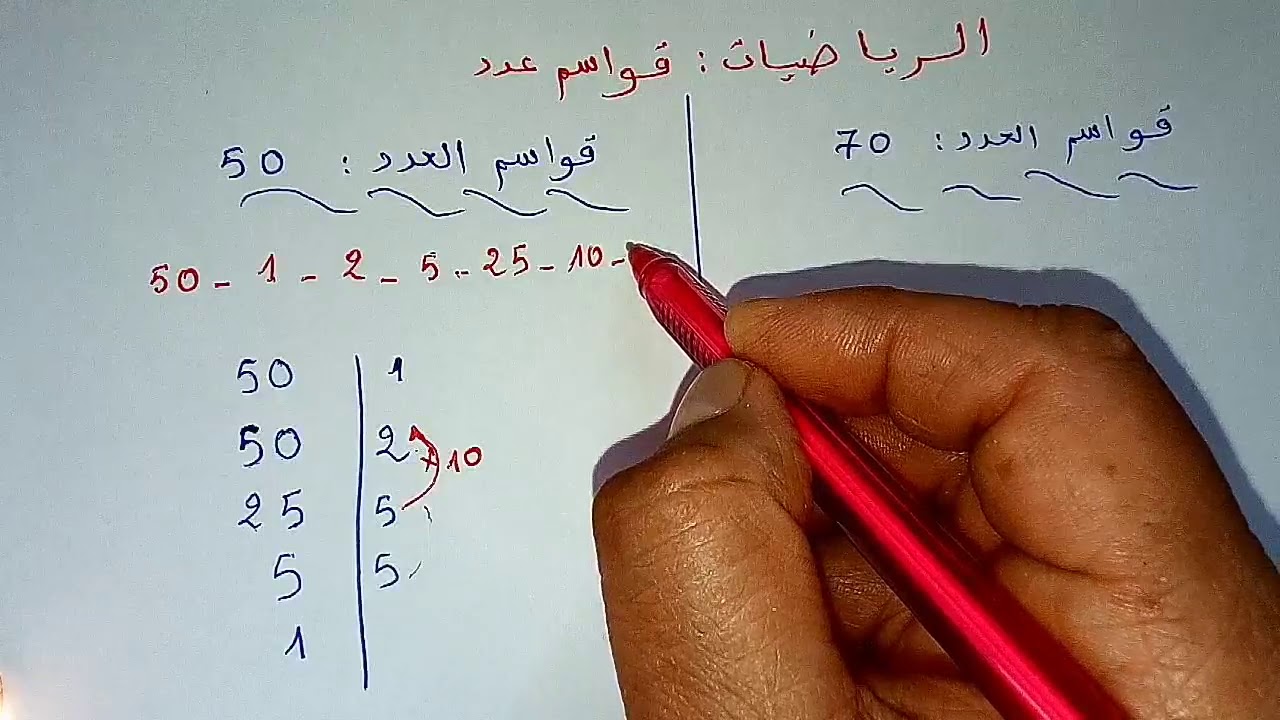 الرياضيات : قواسم عدد
قواسم العدد : 70
قواسم العدد : 50
50 - 1 - 2 - 5 - 25 - 10 -
50 | 1
50 | 2
10
25 | 5
5 | 5
1